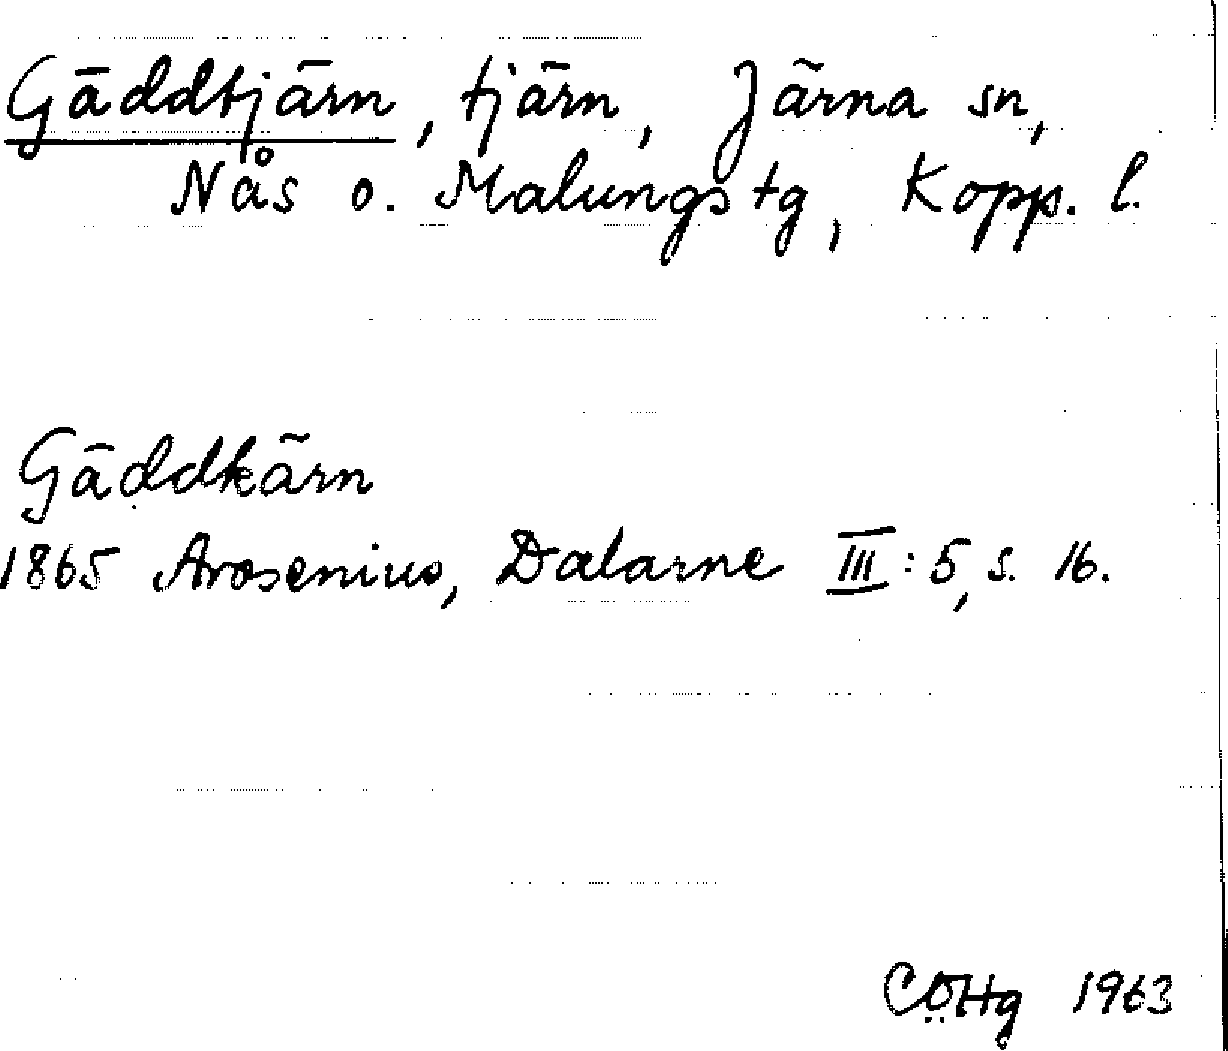 Gäddtjärn, tjärn, Järna sn,
Nås o. Malungs tg, Kopp. l.
Gäddkärn
1865 Arosenius, Dalarne III: 5, s. 16.
CÖHg 1963